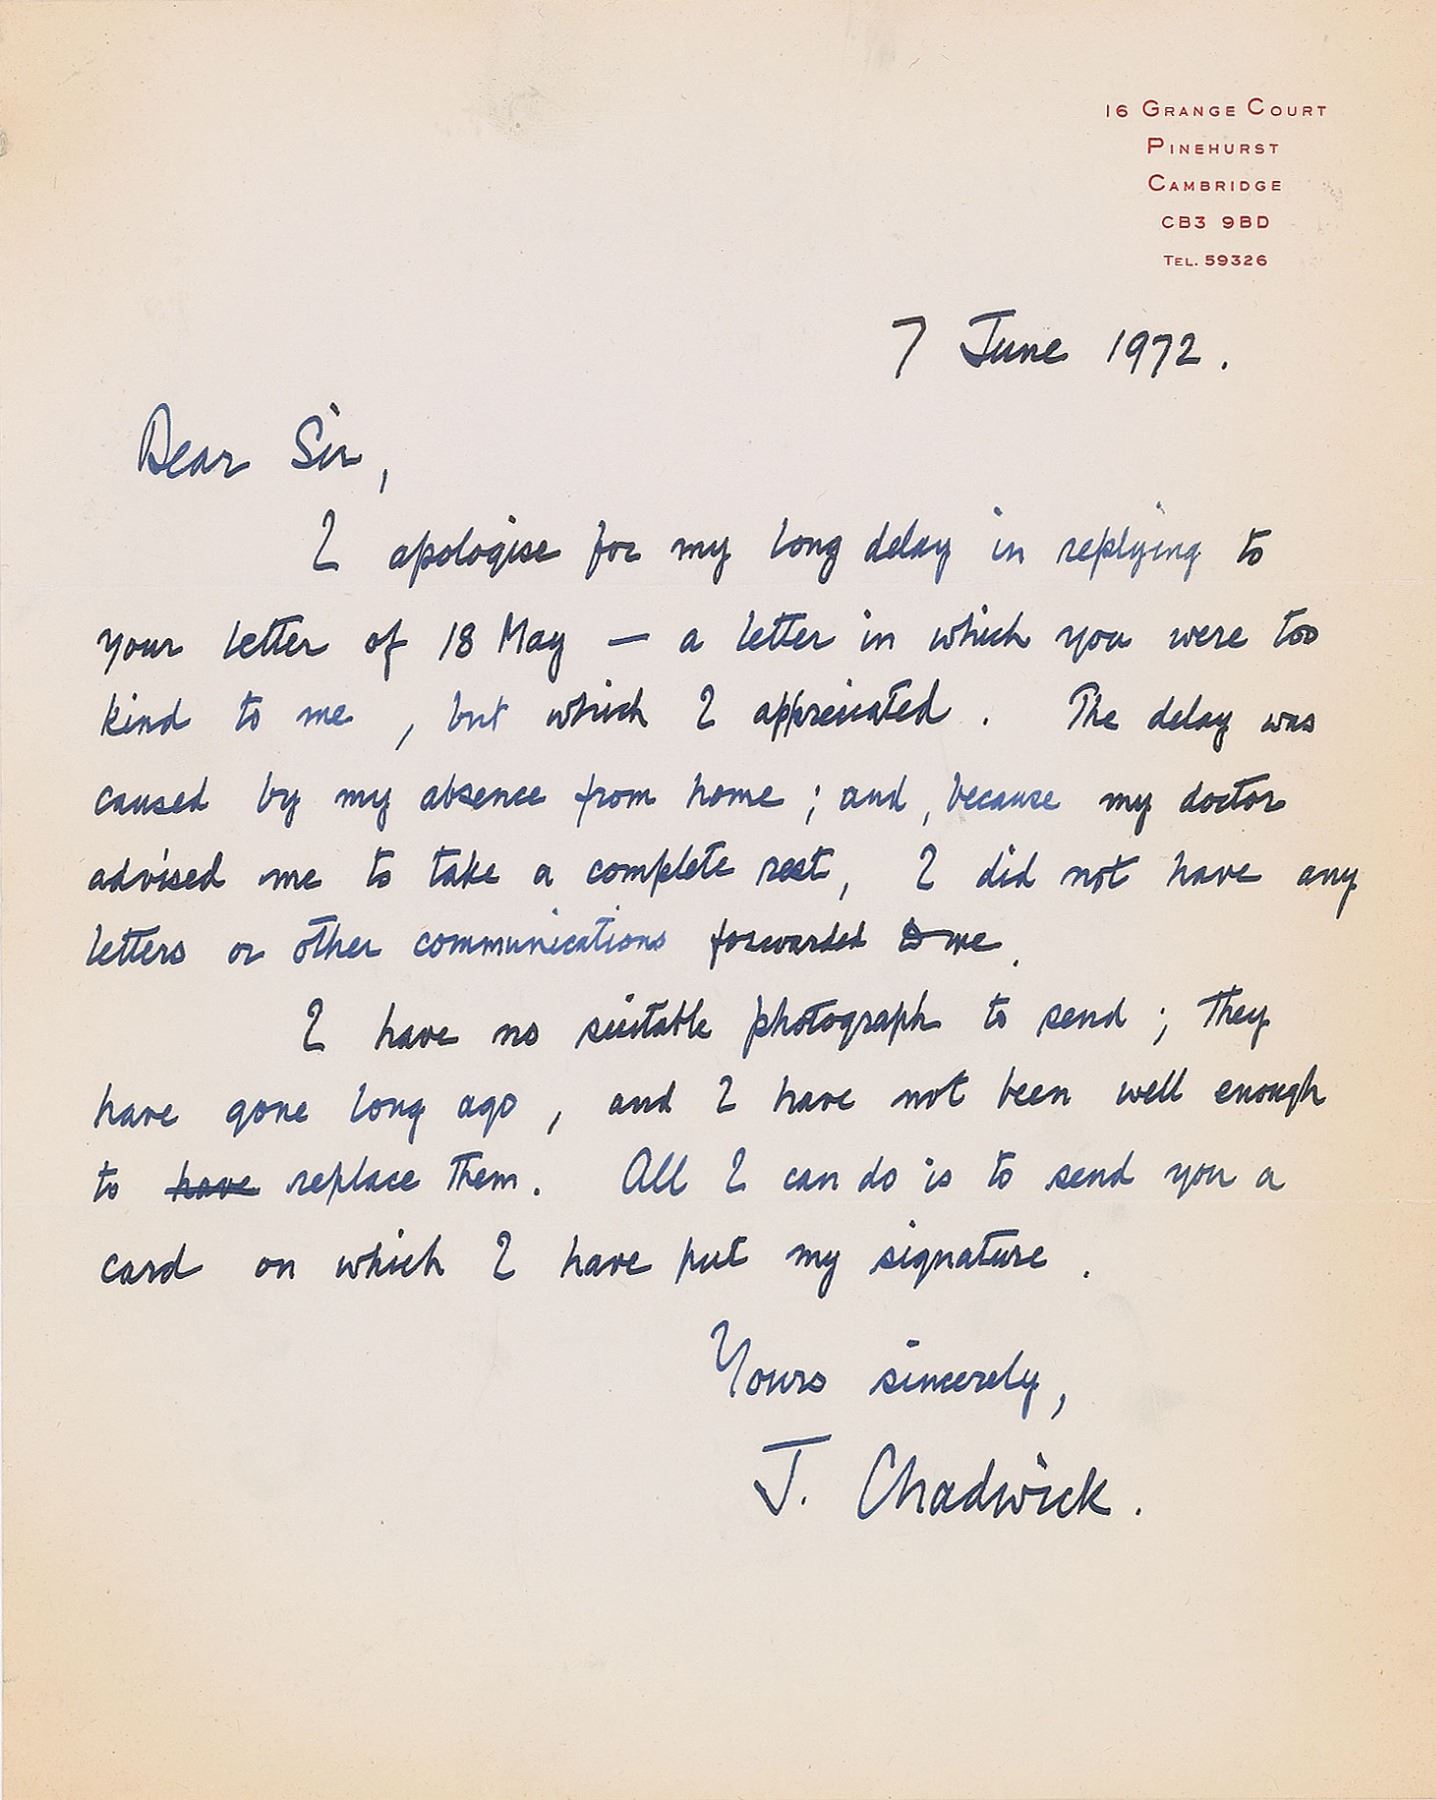 16 Grange Court
Pinehurst
Cambridge
CB3 9BD
Tel. 59326
7 June 1972.
Dear Sir,
I apologise for my long delay in replying to
your letter of 18 May — a letter in which you were too
kind to me, but which I appreciated. The delay was
caused by my absence from home; and, because my doctor
advised me to take a complete rest, I did not have any
letters or other communications forwarded to me.
I have no suitable photograph to send; they
have gone long ago, and I have not been well enough
to have replace them. All I can do is to send you a
card on which I have put my signature.
Yours sincerely,
J. Chadwick.